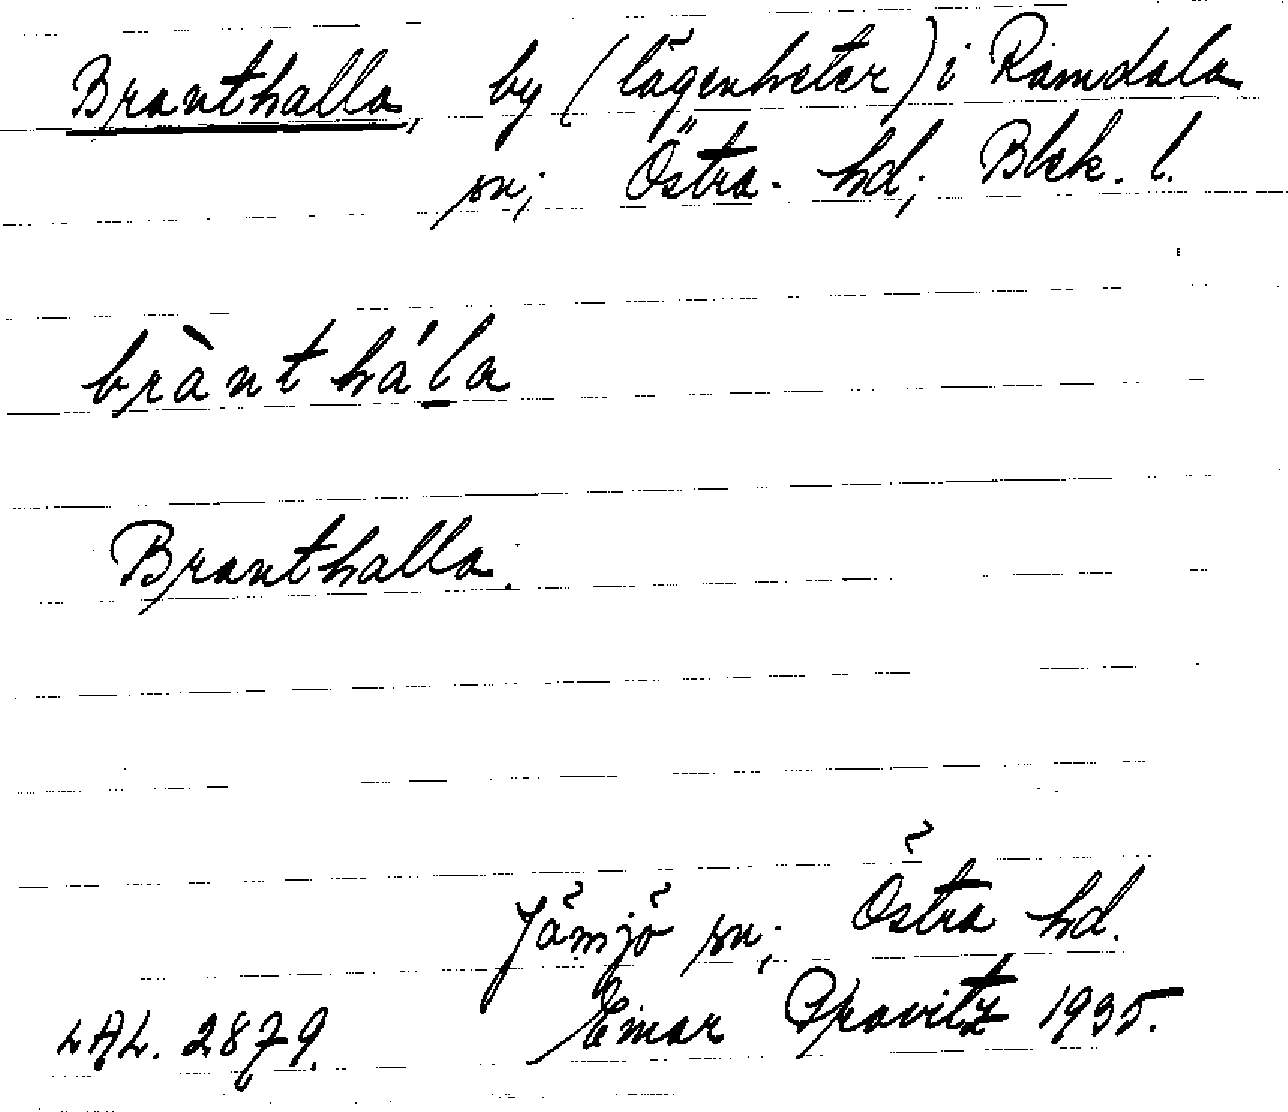 Branthalla, by (lägenheter) i Ramdala
sn; Östra. hd; Blek. l.
brànthá'la
Branthalla.
Jämjö sn; Östra hd.
LAL. 2879. Einar 1935.